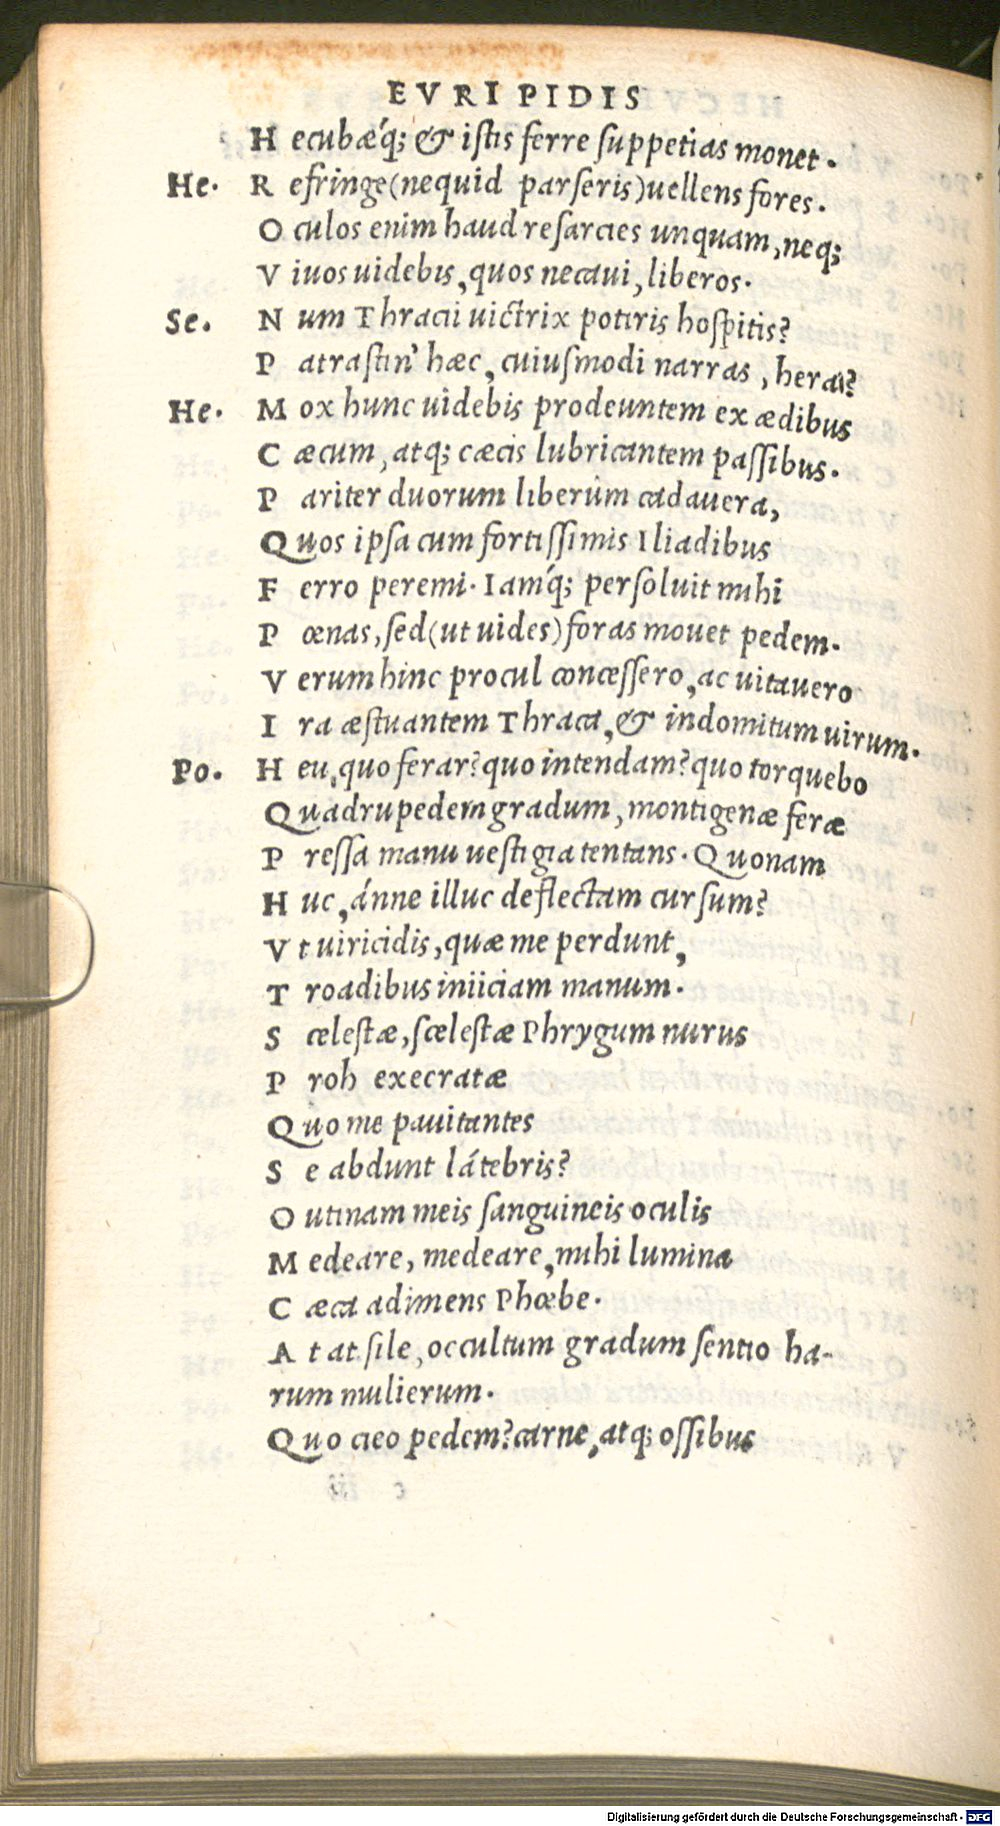 EVRIPIDIS
H ecubæq́; & istis ferre suppetias monet.
He. R efringe(nequid parseris)uellens fores.
O culos enim haud resarcies unquam, neq;
V iuos uidebis, quos necaui, liberos.
Se. N um Thracii uictrix potiris hospitis?
P atrastin' hæc, cuiusmodi narras, hera?
He. M ox hunc uidebis prodeuntem ex ædibus
C æcum, atq; cæcis lubricantem passibus.
P ariter duorum liberûm cadauera,
Quos ipsa cum fortissimis Iliadibus
F erro peremi. Iamq́; persoluit mihi
P œnas, sed(ut uides)foras mouet pedem.
V erum hinc procul concessero, ac uitauero
I ra æstuantem Thraca, & indomitum uirum.
Po. H eu, quo ferar? quo intendam? quo torquebo
Quadrupedem gradum, montigenæ feræ
P ressa manu uestigia tentans. Quonam
H uc, ánne illuc deflectam cursum?
V t uiricidis, quæ me perdunt,
T roadibus iniiciam manum.
S celestæ, scelestæ Phrygum nurus
P roh execratæ
Quo me pauitantes
S e abdunt látebris?
O utinam meis sanguineis oculis
M edeare, medeare, mihi lumina
C æca adimens Phœbe.
A t at sile, occultum gradum sentio ha-
rum mulierum.
Quo cieo pedem? carne, atq; ossibus
c iii
Digitalisierung gefördert durch die Deutsche Forschungsgemeinschaft - DFG